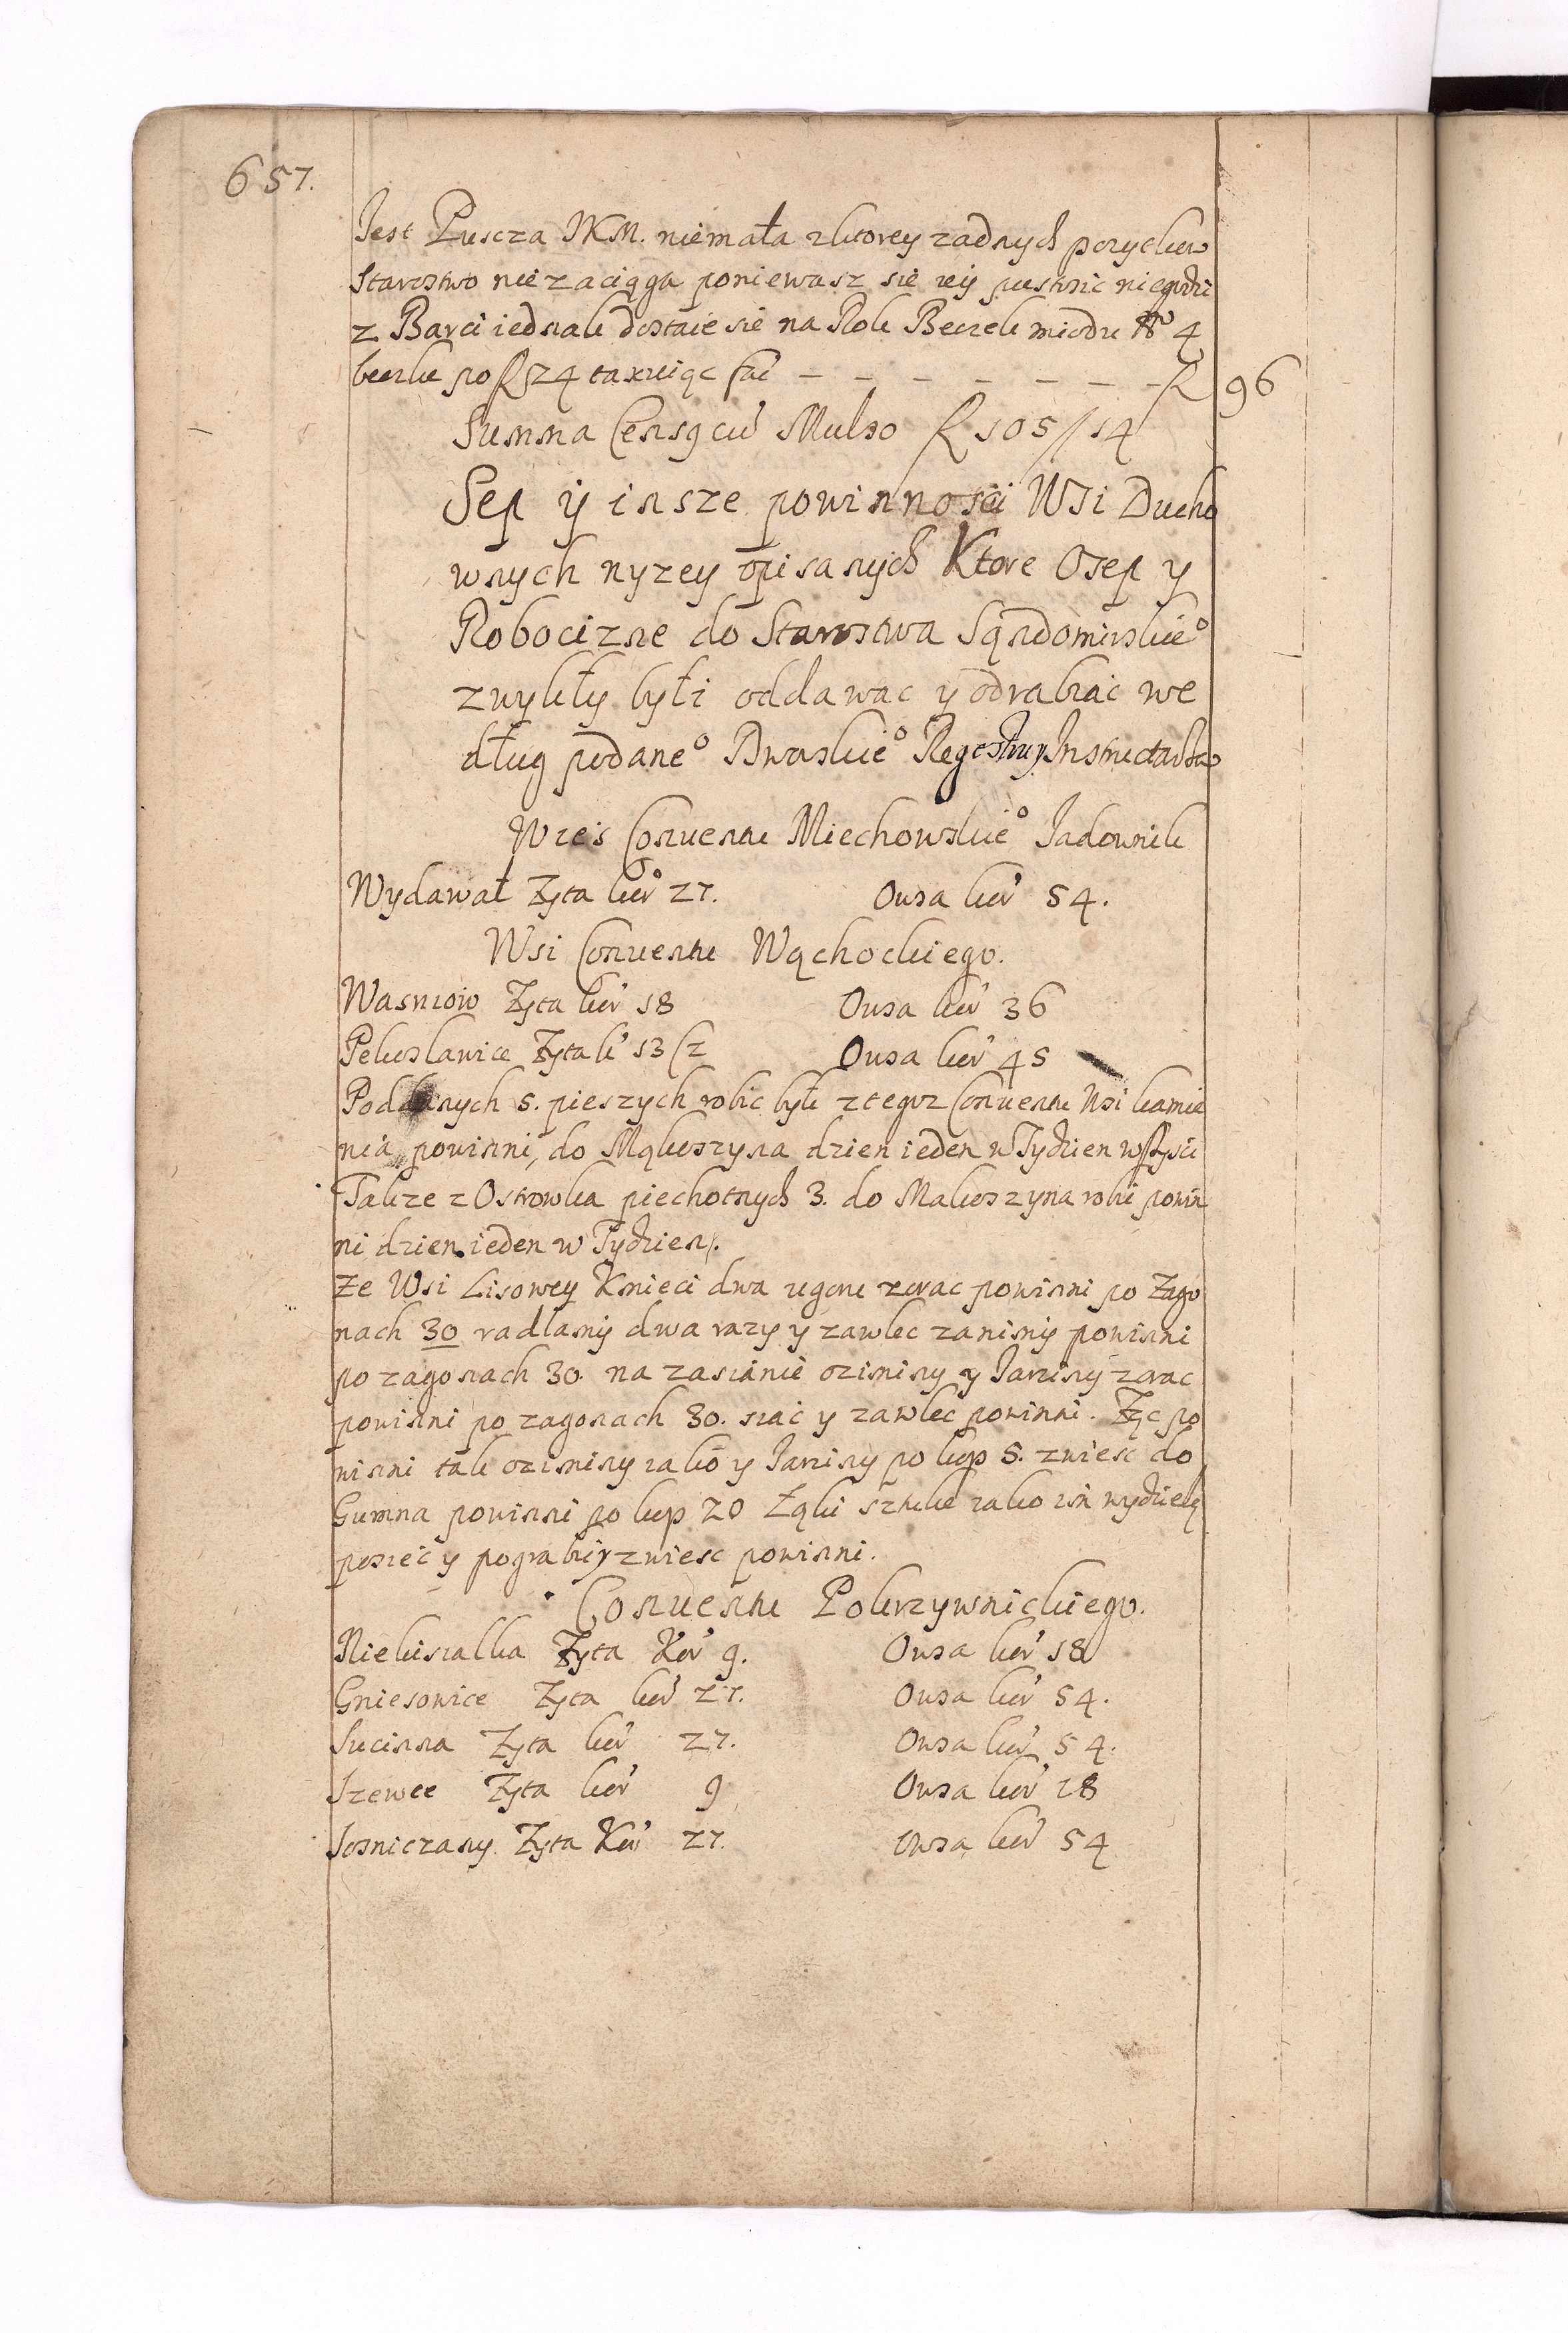 657.
Jest Puscza JKM. niemała zktorey zadnych pozytkow
Starostwo nie zaciąga poniewasz się iey pustosić niegodzi
z Barci iednak dostaie się na Rok Beczek miodu Nº 4
beczke po fl 24 taxuiąc fać - - - - - - - fl 96
Summa Censq cu Mulso fl 105/14
Sep ÿ insze powinnosci Wsi Ducho
wnych nyzey opisanych Ktore Osep y
Robocizne do Starostwa Sąndomirskieº
zwykły byłi oddawac y odrabiać we
dług podaneº Dwaskieº Regestru y Instructarzow
Wieś Conuentu Miechowskieº Jadownik
Wydawał Zyta kor 27. Owsa kor 54.
Wsi Conuentu Wąchockiego.
Wasniow Zyta kor 18 Owsa kor 36
Pekoslawice Zyta k 13 (2 Owsa kor 45
Poddanych 5. pieszych robic byli ztegoz Conuentu Wsi kamie
nia powinni, do Mąkoszyna dzien ieden w Tydzien wszyscÿ
Takze z Ostrowka piechotnych 3. do Makoszyna robic powin
ni dzien ieden w Tydzien.
Ze Wsi Lisowey Kmieci dwa ugoru zorac powinni po Zago
nach 30 radlany dwa razy y zawlec zanimy powinni
po zagonach 30. na zasianie oziminy y Jarziny zorac
powinni po zagonach 30. siać y zawlec powinni. Żąc po
winni tak oziminy iako y Jarziny po kop 5. zwiesc do
Gumna powinni po kop 20 Łąki sztuke iako im wydzielą
posiec y pograbic y zwiesc powinni.
Conuentu Pokrzywnickiego.
Niekisialka Zyta Kor 9. Owsa kor 18
Gniesowice Zyta kor 27. Owsa kor 54.
Sucinna Zyta kor 27. Owsa kor 54.
Szewce Zyta kor 9 Owsa kor 18
Sosniczany Zyta Kor 27. Owsa kor 54